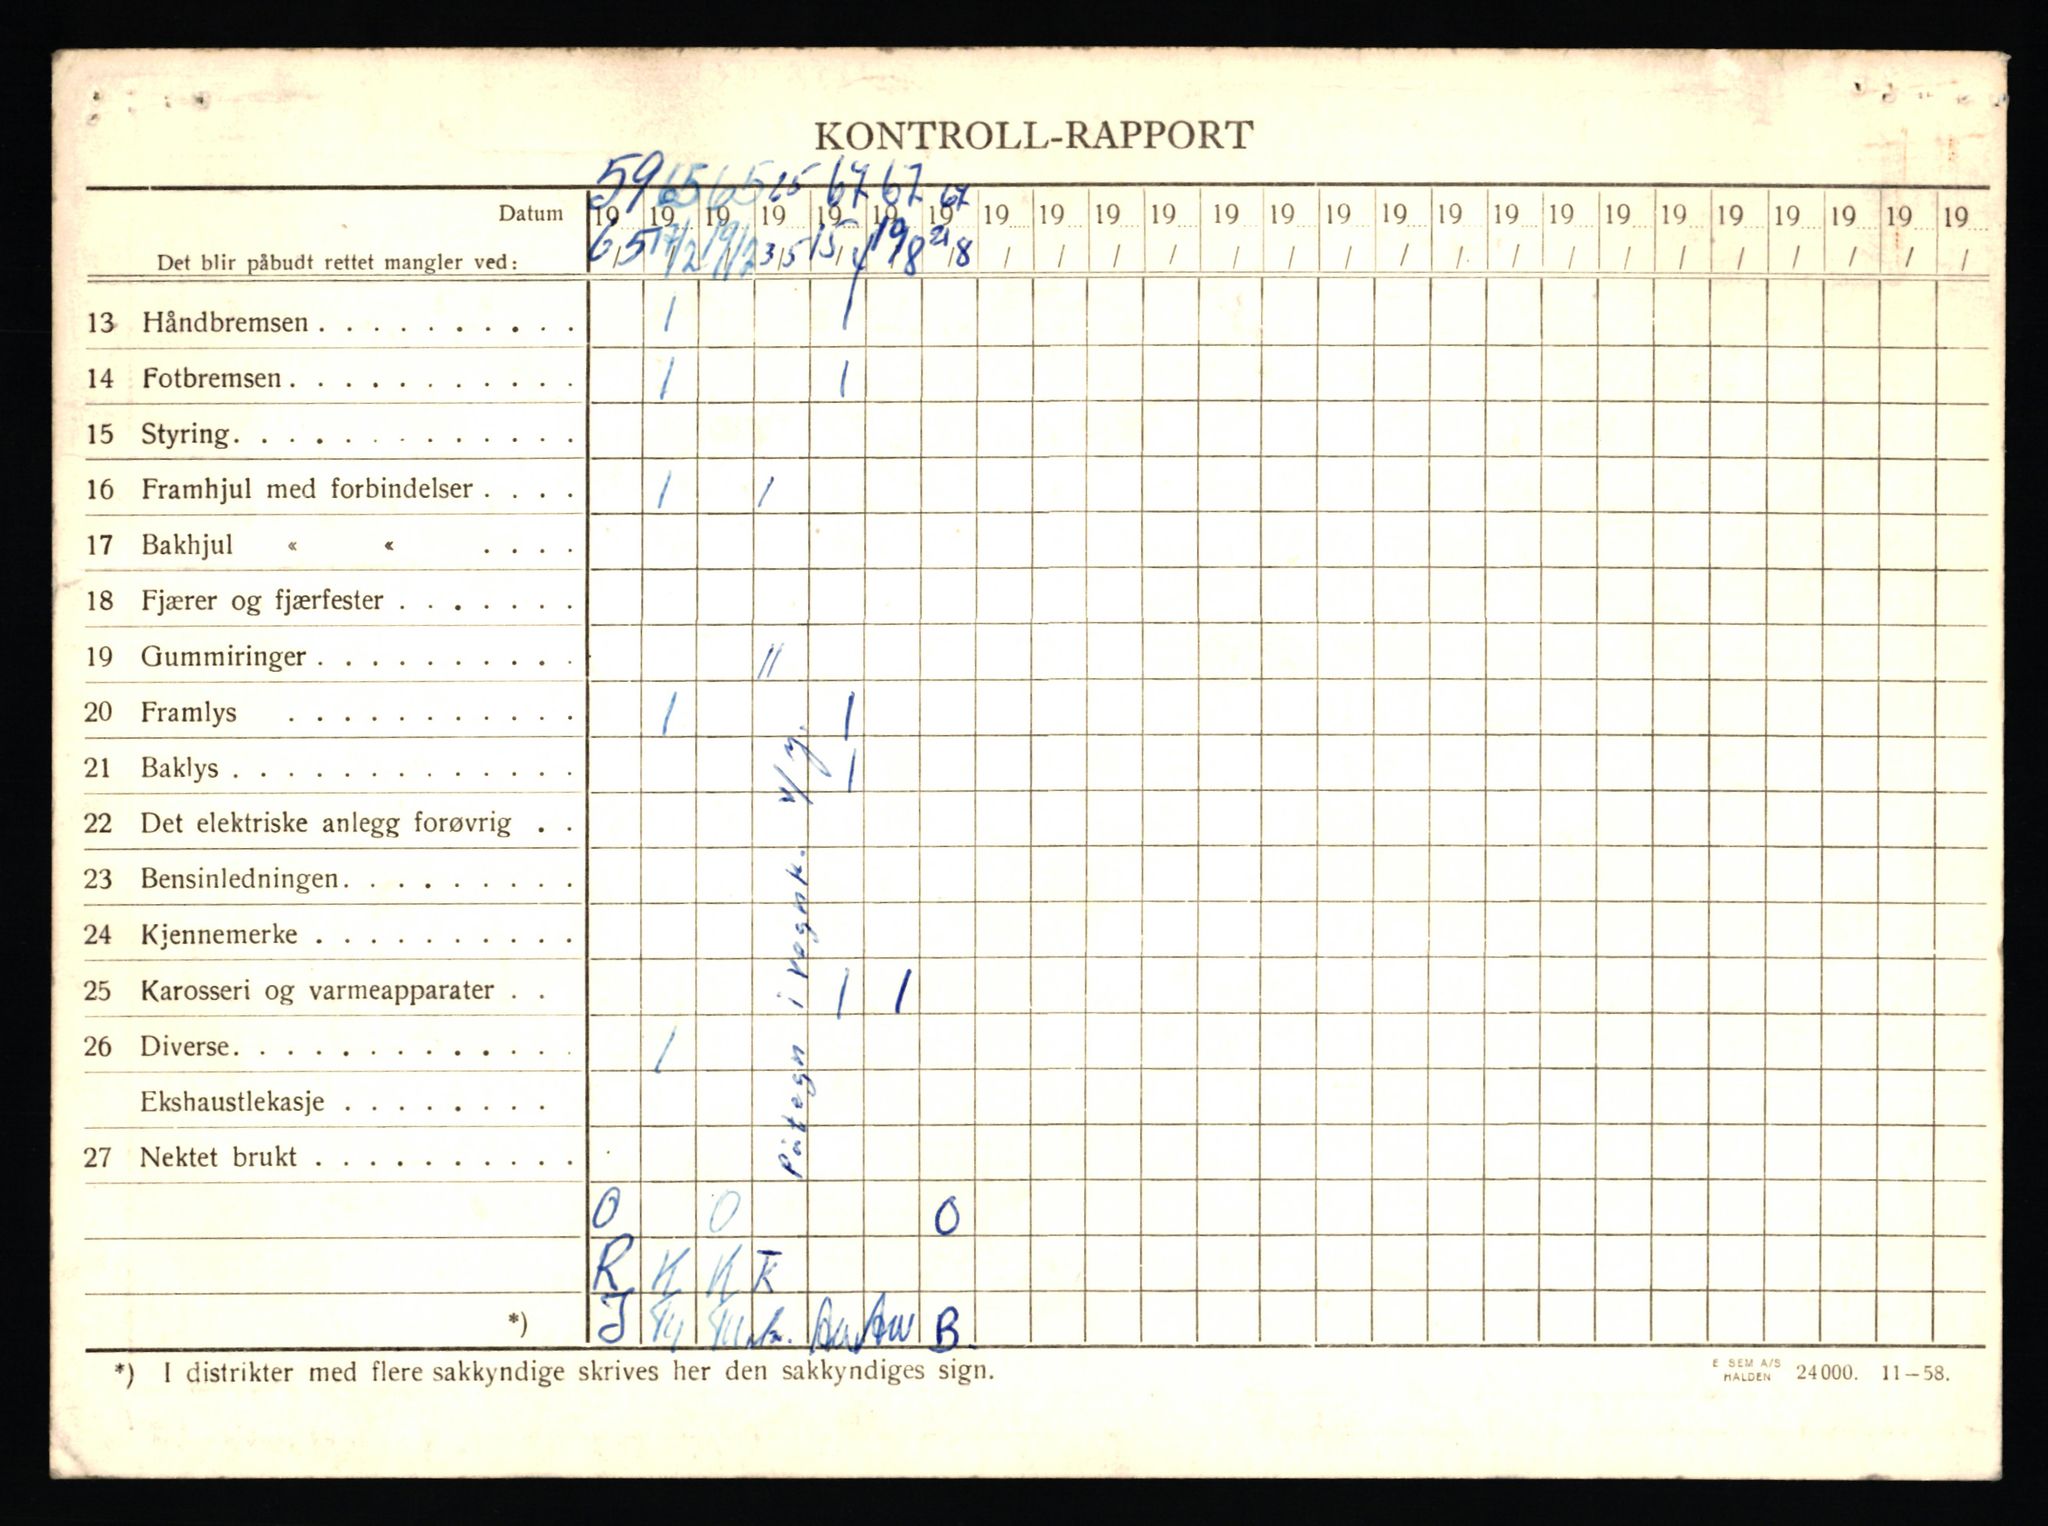 KONTROLL-RAPPORT
59 65 65 65 67 67 67
Datum 19 19 19 19 19 19 19 19 19 19 19 19 19 19 19 19 19 19 19 19 19 19 19 19 19
Det blir påbudt rettet mangler ved: 6/5 17/2 19/12 3/5 15/4 19/8 21/8 / / / / / / / / / / / / / / / / / /
13 Håndbremsen . . . . . . . . . . 1 1
14 Fotbremsen . . . . . . . . . . . 1 1
15 Styring . . . . . . . . . . . . .
16 Framhjul med forbindelser . . . . 1 1
17 Bakhjul « « . . . .
18 Fjærer og fjærfester . . . . . . .
19 Gummiringer . . . . . . . . . . 11
20 Framlys . . . . . . . . . . . 1 1
21 Baklys . . . . . . . . . . . . . 1
22 Det elektriske anlegg forøvrig . .
23 Bensinledningen . . . . . . . . .
24 Kjennemerke . . . . . . . . . .
25 Karosseri og varmeapparater . . 1 1
26 Diverse . . . . . . . . . . . . . 1
Ekshaustlekasje . . . . . . . .
27 Nektet brukt . . . . . . . . . .
Påtegn i vognk.
O O O
R K K K
*) J B.
*) I distrikter med flere sakkyndige skrives her den sakkyndiges sign.
E SEM A/S
HALDEN 24000. 11-58.